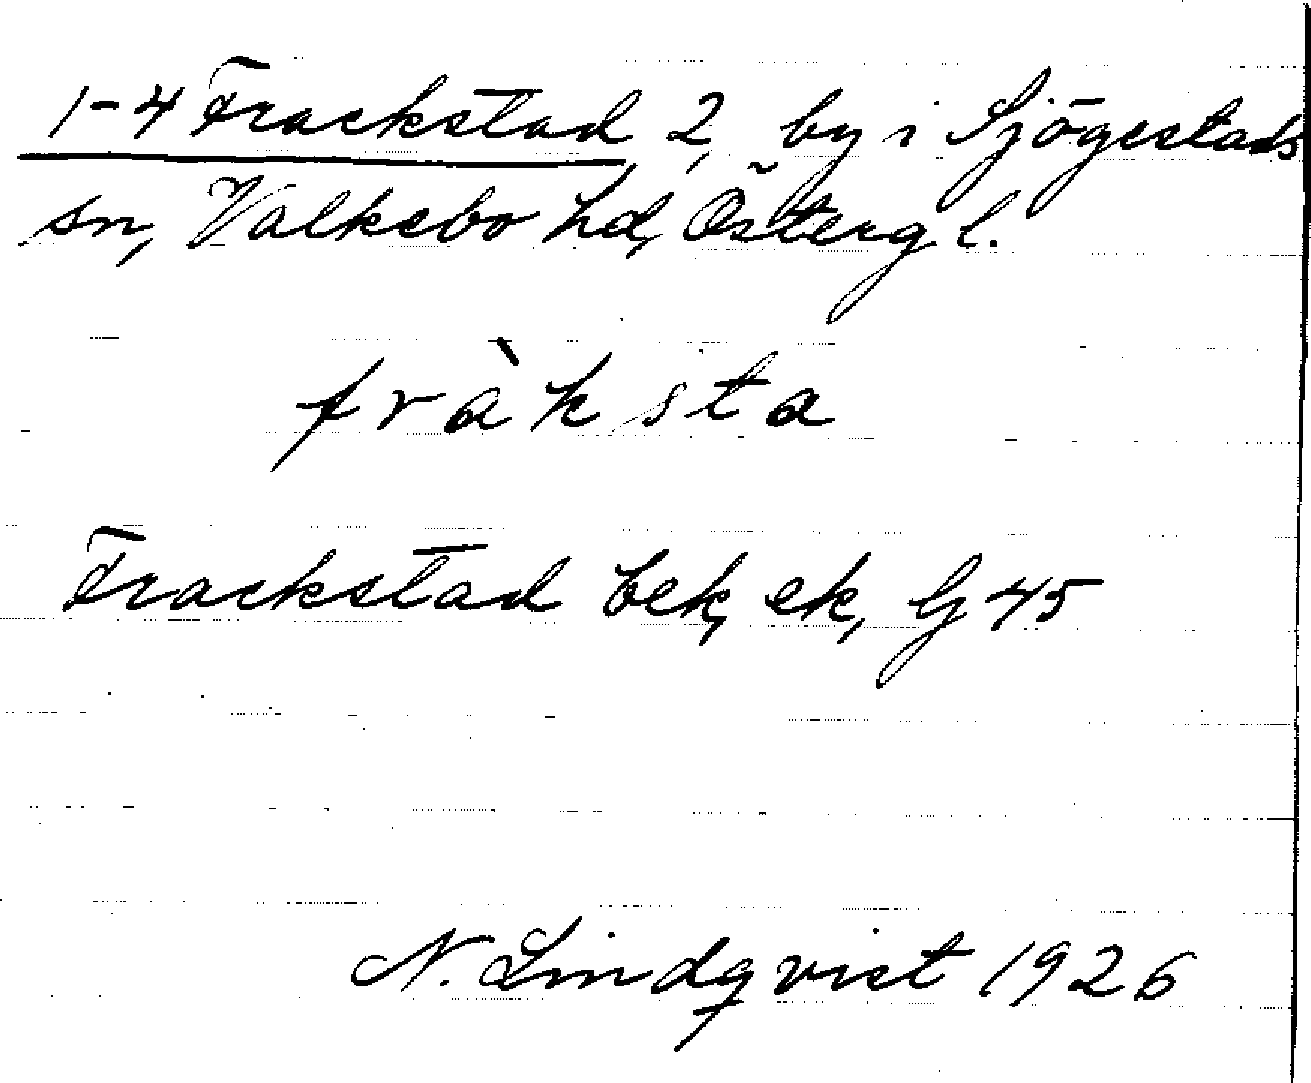 1-4 Frackstad 2, by i Sjögestads
sn, Valkebo hd, Östergl.
fràksta
Frackstad bek, ek, G 45
N. Lindqvist 1926